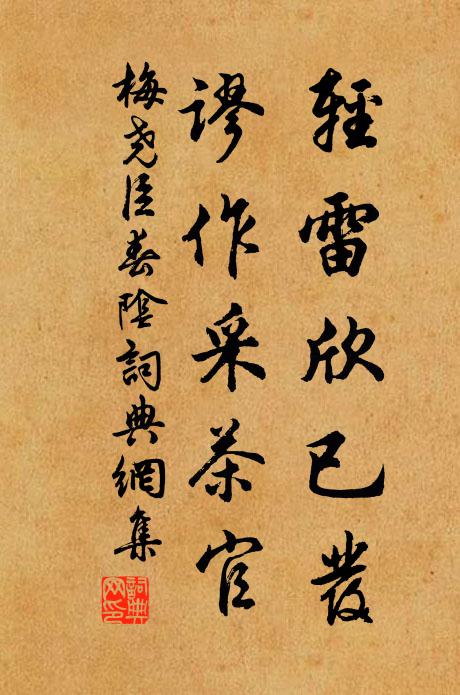 輕雷欣已發
謬作采茶官
梅堯臣春陰詞典網集
詞典
网印